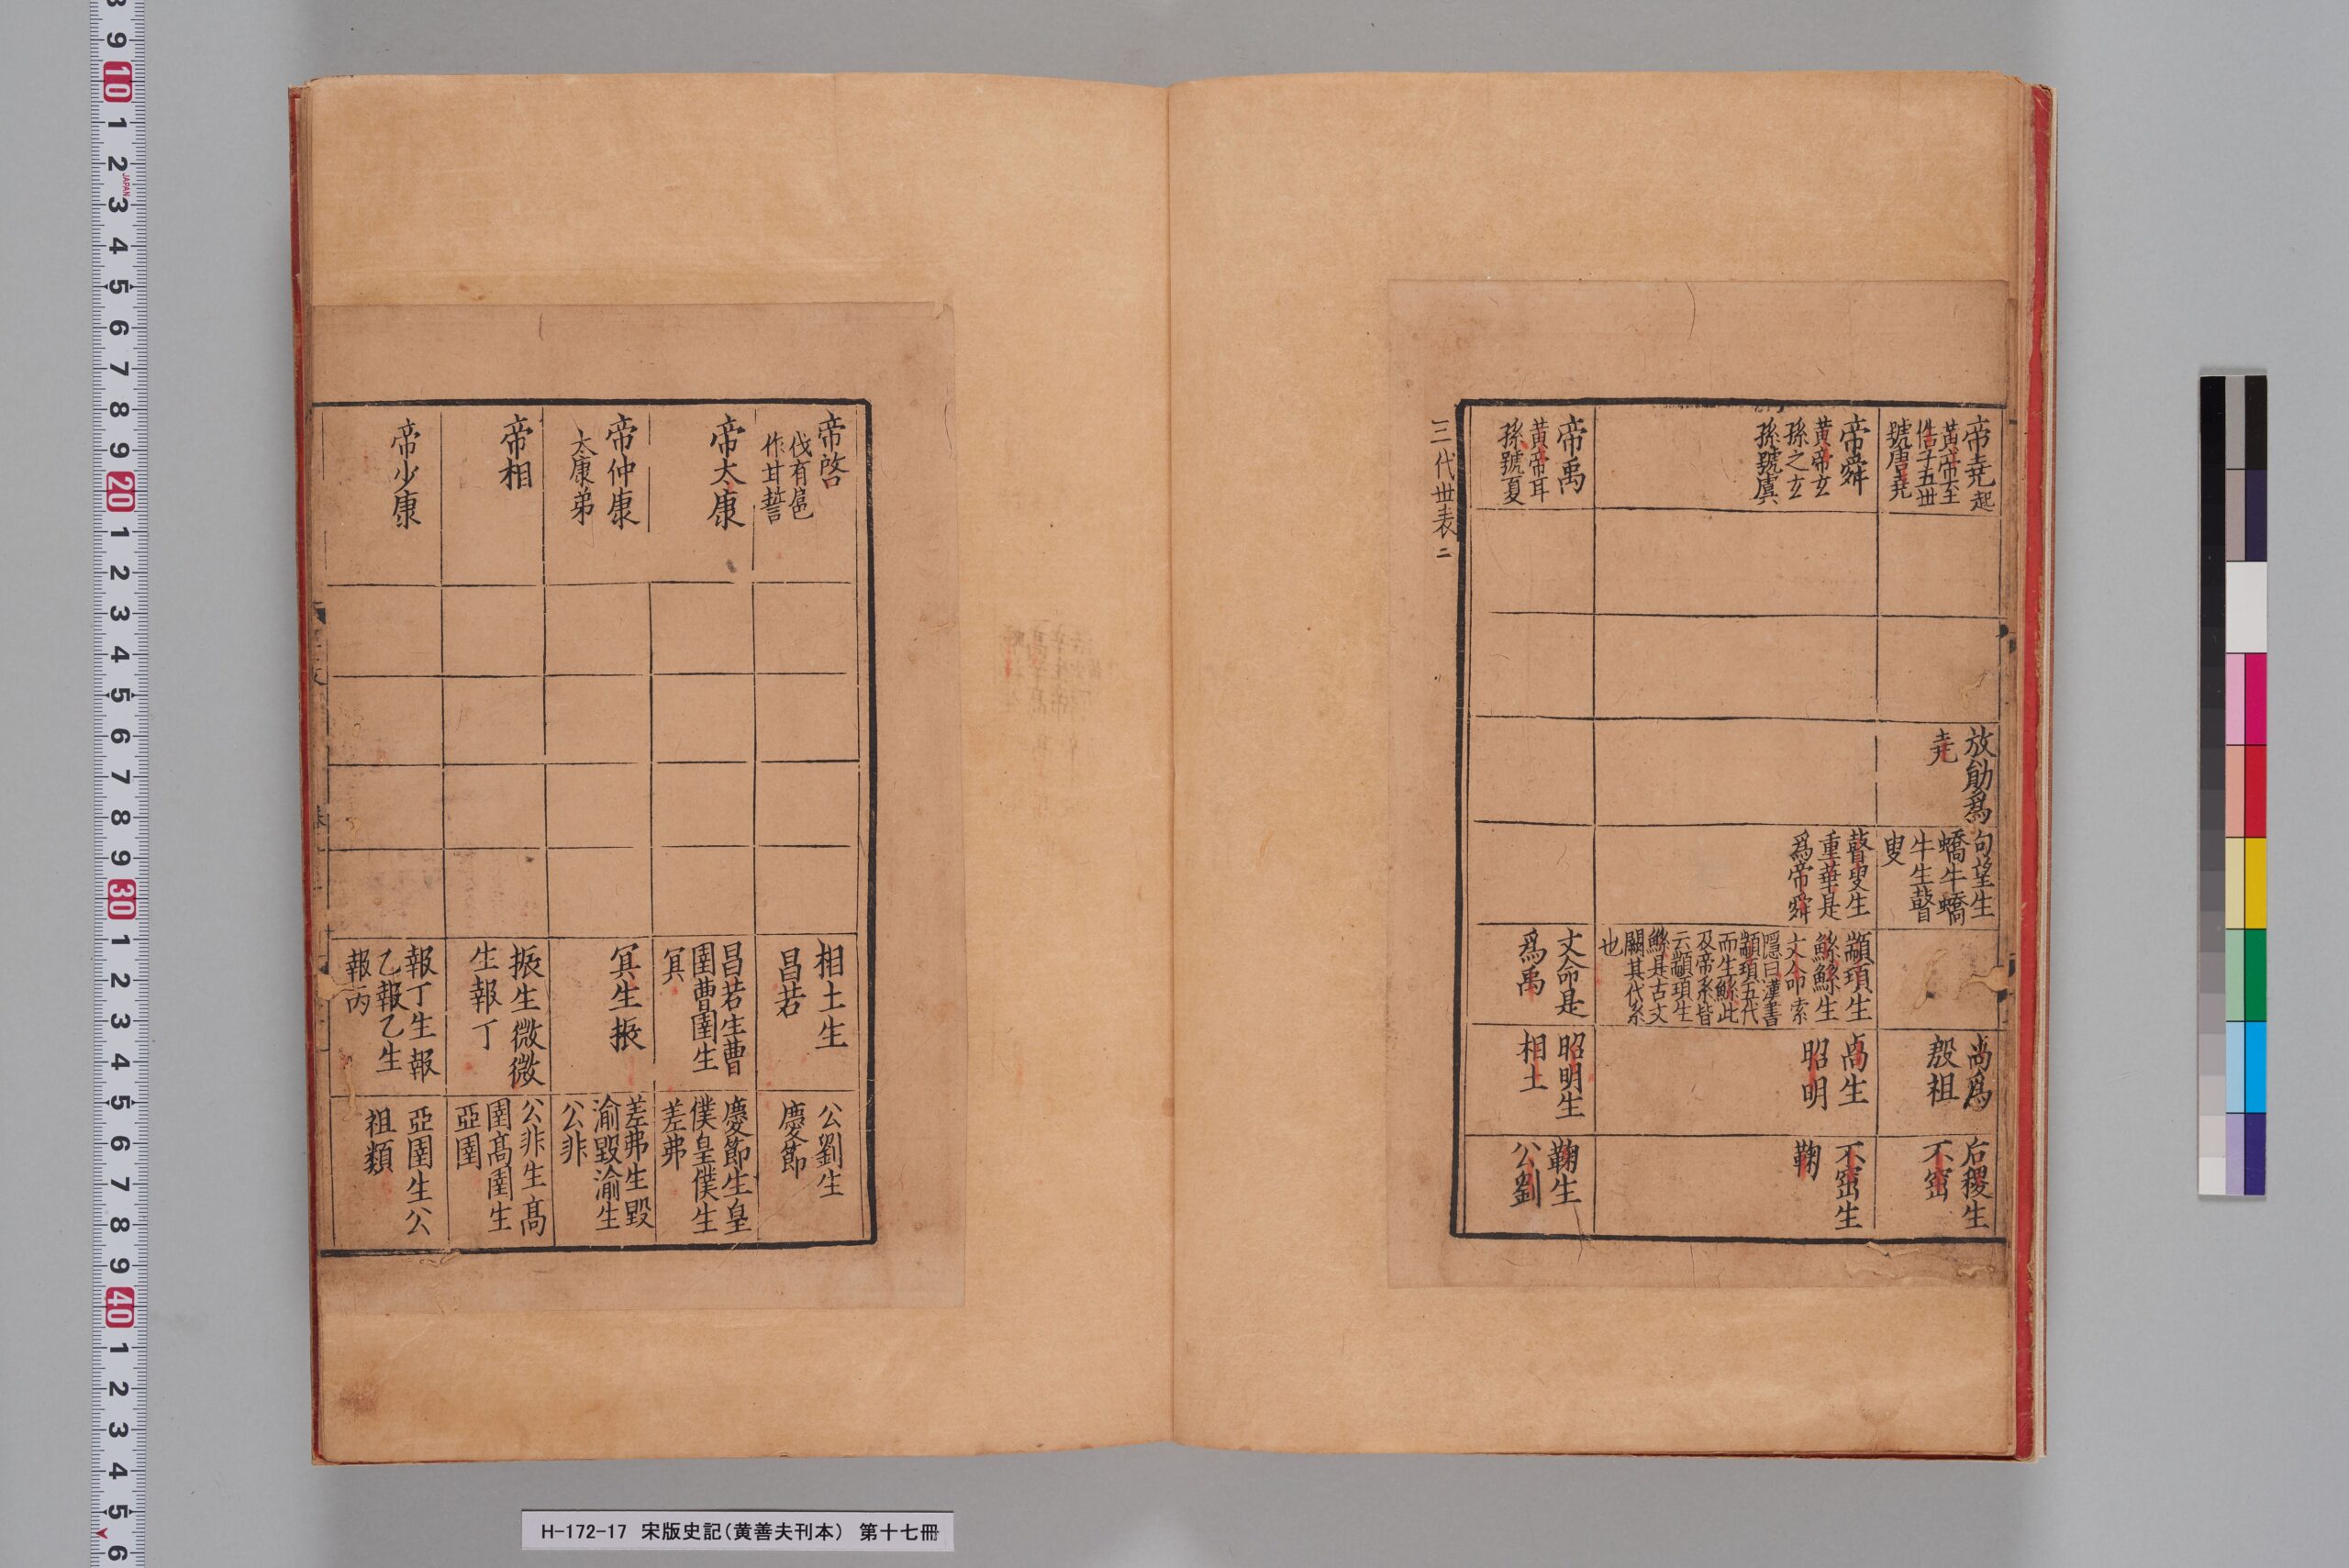 帝堯起
黃帝至
俈子五世
號唐堯
放勛爲
堯
句望生
蟜牛蟜
牛生瞽
叟
卨爲
殷祖
后稷生
不窋
帝舜
黃帝玄
孫之玄
孫號虞
瞽叟生
重華是
爲帝舜
顓頊生
鯀鯀生
文命索
隱曰漢書
顓頊五代
而生鯀此
及帝系皆
云顓頊生
鯀是古文
闕其代系
也
卨生
昭明
不窋生
鞠
帝禹
黃帝耳
孫號夏
文命是
爲禹
昭明生
相土
鞠生
公劉
三代世表
二
帝啓
伐有扈
作甘誓
相土生
昌若
公劉生
慶節
帝太康
昌若生曹
圉曹圉生
冥
慶節生皇
僕皇僕生
差弗
帝仲康
太康弟
冥生振
差弗生毀
渝毀渝生
公非
帝相
振生微微
生報丁
公非生高
圉高圉生
亞圉
帝少康
報丁生報
乙報乙生
報丙
亞圉生公
祖類
H-172-17 宋版史記（黄善夫刊本） 第十七冊
8
9
10
1
2
JAPAN
3
4
5
6
7
8
9
20
1
2
3
4
5
6
7
8
9
30
1
2
3
4
5
6
7
8
9
40
1
2
3
4
5
6